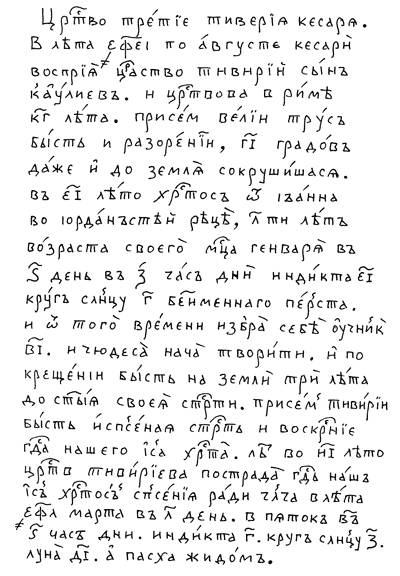 Црⷭ҇тво тре́тїе тиверїꙗ кесарѧ.
В лѣта ҂ефе҃і по а́вгусте кесарѝ
воспрїѧ̀ црⷭ҇тво тивирїй сы́нъ
каꙋ́лиевъ. и црⷭ҇твова в ри́мѣ
к҃г лѣта. присе́м ве́лїи тру́съ
бы́сть и разоре́нїи, г҃і градо́въ
да́же и҆ до землѧ̀ сокруши́шасѧ.
въ е҃і лѣ́то хрⷭ҇тосъ ѿ іѡа́нна
во іорда́нъстѣй рѣцѣ̀, л҃ ти лѣ́тъ
во́зраста своего̀ мⷭ҇ца генварѧ̀ въ
ѕ҃ день въ з҃ ча́съ днѝ инди́кта е҃і
кру́гъ слн҃цу г҃ безименнаго пе́рⷭ҇ста.
и ѿ того̀ вре́мени избра̀ себѣ̀ оу҆чн҃къ
в҃і. и чюдеса̀ нача̀ твори́ти. и҆ по
креще́нїи бы́сть на землѝ трѝ лѣ́та
до ст҃ы́ѧ своеѧ̀ стрⷭ҇ти. присе́м тиви́рїи
бы́сть и҆спⷭ҇сеная стрⷭ҇ть и воскрⷭ҇нїе
гдⷭ҇а на́шего і҆сⷭ҇а хрⷭ҇та̀. лѣ̀ во и҃і лѣ́то
црⷭ҇тв тиви́рїева пострада̀ гдⷭ҇ь на́шъ
і҆сⷭ҇ъ хрⷭ҇то́съ спⷭ҇се́нїѧ ра́ди чл҃ча в лѣ́та
҂ефл҃ а марта въ л҃ день. в пѧто́къ въ
ѕ҃ ча́съ дни. инди́кта г҃. кругъ слн҃цу з҃.
луна̀ д҃і. а҆ пасха жидо́мъ.